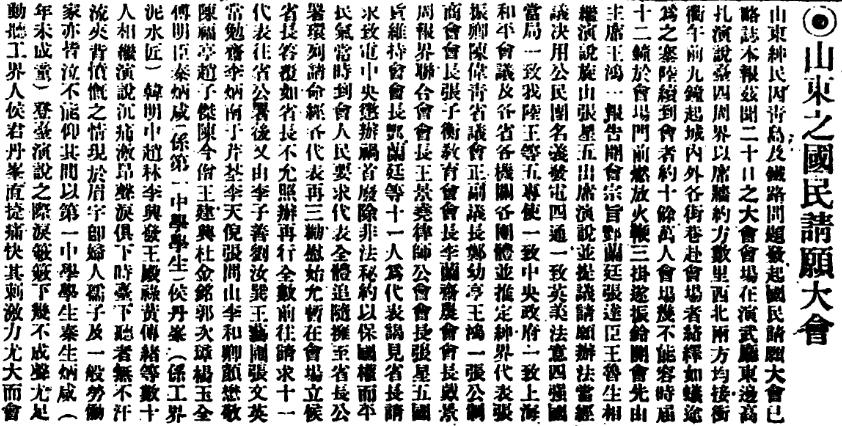 ◉山東之國民請願大會
山東紳民因靑島及鐵路問題發起國民請願大會已
略誌本報茲聞二十日之大會會場在演武廳東邊高
扎演說臺四周界以席牆約方數里西北兩方均接街
衢午前九鐘起城內外各街巷赴會場者絡繹如蟻途
爲之塞陸續到會者約十餘萬人會場幾不能容時屆
十二鐘於會場門前燃放火鞭三掛遂振鈴開會先由
主席王鴻一報告開會宗旨鄭蘭廷張達臣王魯生相
繼演說旋由張星五出席演說並提議請願辦法當經
議決用公民團名義發電四通一致英美法意四强國
當局一致我陸王等五專使一致中央政府一致上海
和平會議及各省各機關各團體並推定紳界代表張
振卿陳偉靑省議會正副議長鄭幼亭王鴻一張公制
商會會長張子衡敎育會會長李蘭齋農會會長戴景
周報界聯合會會長王景堯律師公會會長張星五國
貨維持會會長鄭蘭廷等十一人爲代表謁見省長請
求致電中央懲辦禍首廢除非法秘約以保國權而平
民氣當時到會人民要求代表全體追隨擁至省長公
署環列請命經各代表再三勸慰始允暫在會場立候
省長答覆如省長不允照辦再行全數前往請求十一
代表往省公署後又由李子善劉汝巽王藹剛張文英
常勉齋李炳南于芹基李天倪張問山李和卿顏懋敬
陳福亭趙子傑陳今僧王建興杜金銘郭次璋楊玉全
傅明臣秦炳咸（係第一中學學生）侯丹峯（係工界
泥水匠）韓明中趙林李興發王殿祿黃傳緒等數十
人相繼演說沉痛激昂聲淚俱下時臺下聽者無不汗
流夾背憤慨之情現於眉宇卽婦人孺子及一般勞働
家亦皆泣不能仰其間以第一中學學生秦生炳咸（
年未成童）登臺演說之際淚簌簌下幾不成聲尤足
動聽工界人侯君丹峯直捷痛快其刺激力尤大而會